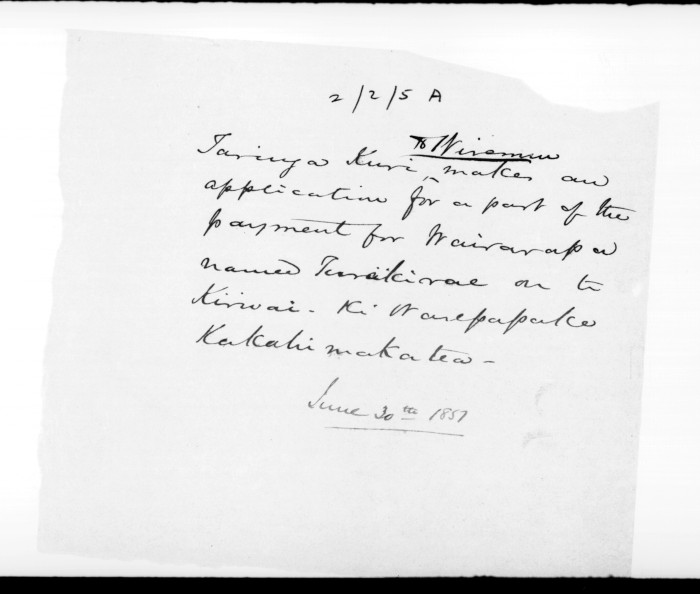 2/2/5 A
to Wiremu
Taringa Kuri, makes an
application for a part of the
payment for Wairarapa
named Turakirae on te
Kiriwai - Ki
Kakahimakatea -
June 30th 1851